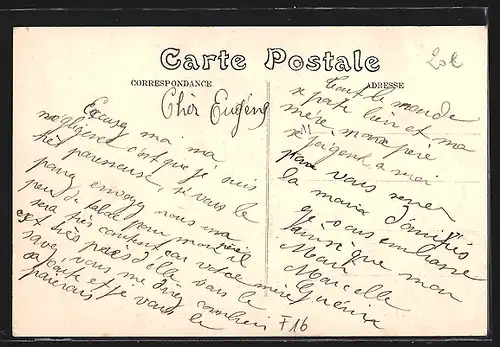 Carte Postale
CORRESPONDANCE
ADRESSE
Cher Eugène
Excusez moi ma
négligence c'est que je suis
très paresseuse, si vous le
pouvez envoyez nous un
peu de tabac pour mon père il
sera très content car votre mère
est très pas delle vous le
savez, vous me direz combien
ça coûte et je vous le
paierais
Tout le monde
se porte bien et ma
mère, mon père
se joignent à moi
pour vous serrer
la main d'amitiés
je vous embrasse
ainsi que mon
Mari
Marcelle
Guérin
F16
20k